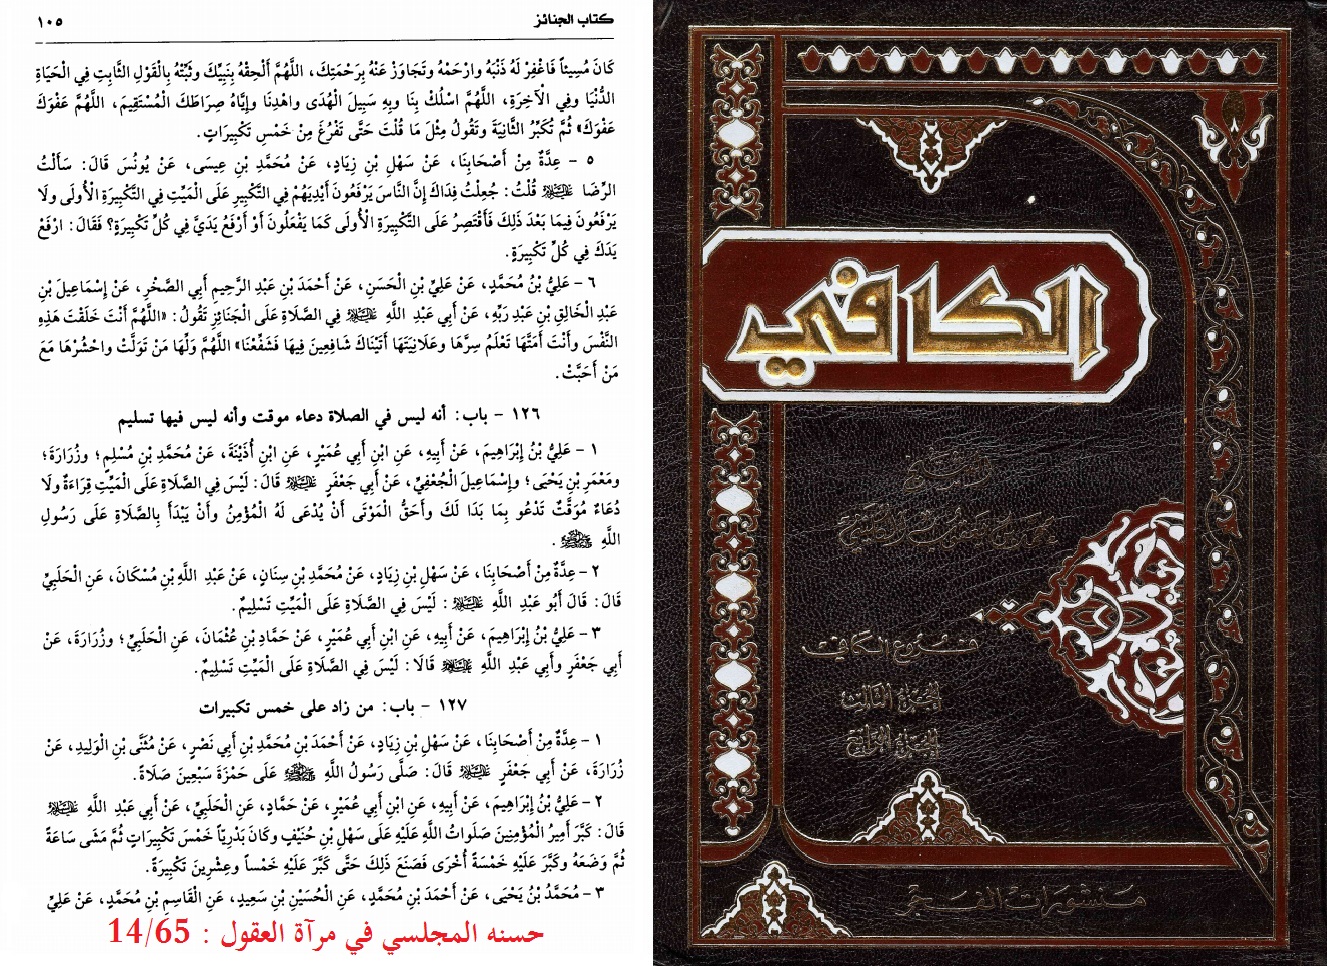 كتاب الجنائز
١٠٥
كَانَ مُسِيئاً فَاغْفِرْ لَهُ ذَنْبَهُ وارْحَمْهُ وتَجَاوَزْ عَنْهُ بِرَحْمَتِكَ، اللَّهُمَّ أَلْحِقْهُ بِنَبِيِّكَ وثَبِّتْهُ بِالْقَوْلِ الثَّابِتِ فِي الْحَيَاةِ
الدُّنْيَا وفِي الْآخِرَةِ، اللَّهُمَّ اسْلُكْ بِنَا وبِهِ سَبِيلَ الْهُدَى واهْدِنَا وإِيَّاهُ صِرَاطَكَ الْمُسْتَقِيمَ، اللَّهُمَّ عَفْوَكَ
عَفْوَكَ» ثُمَّ تُكَبِّرُ الثَّانِيَةَ وتَقُولُ مِثْلَ مَا قُلْتَ حَتَّى تَفْرُغَ مِنْ خَمْسِ تَكْبِيرَاتٍ.
٥ - عِدَّةٌ مِنْ أَصْحَابِنَا، عَنْ سَهْلِ بْنِ زِيَادٍ، عَنْ مُحَمَّدِ بْنِ عِيسَى، عَنْ يُونُسَ قَالَ: سَأَلْتُ
الرِّضَا عليه السلام قُلْتُ: جُعِلْتُ فِدَاكَ إِنَّ النَّاسَ يَرْفَعُونَ أَيْدِيَهُمْ فِي التَّكْبِيرِ عَلَى الْمَيِّتِ فِي التَّكْبِيرَةِ الْأُولَى ولَا
يَرْفَعُونَ فِيمَا بَعْدَ ذَلِكَ فَأَقْتَصِرُ عَلَى التَّكْبِيرَةِ الْأُولَى كَمَا يَفْعَلُونَ أَوْ أَرْفَعُ يَدَيَّ فِي كُلِّ تَكْبِيرَةٍ؟ فَقَالَ: ارْفَعْ
يَدَكَ فِي كُلِّ تَكْبِيرَةٍ.
٦ - عَلِيُّ بْنُ مُحَمَّدٍ، عَنْ عَلِيِّ بْنِ الْحَسَنِ، عَنْ أَحْمَدَ بْنِ عَبْدِ الرَّحِيمِ أَبِي الصَّخْرِ، عَنْ إِسْمَاعِيلَ بْنِ
عَبْدِ الْخَالِقِ بْنِ عَبْدِ رَبِّهِ، عَنْ أَبِي عَبْدِ اللَّهِ عليه السلام فِي الصَّلَاةِ عَلَى الْجَنَائِزِ تَقُولُ: «اللَّهُمَّ أَنْتَ خَلَقْتَ هَذِهِ
النَّفْسَ وأَنْتَ أَمَتَّهَا تَعْلَمُ سِرَّهَا وعَلَانِيَتَهَا أَتَيْنَاكَ شَافِعِينَ فِيهَا فَشَفِّعْنَا» اللَّهُمَّ وَلِّهَا مَنْ تَوَلَّتْ واحْشُرْهَا مَعَ
مَنْ أَحَبَّتْ.
١٢٦ - باب: أنه ليس في الصلاة دعاء موقت وأنه ليس فيها تسليم
١ - عَلِيُّ بْنُ إِبْرَاهِيمَ، عَنْ أَبِيهِ، عَنِ ابْنِ أَبِي عُمَيْرٍ، عَنِ ابْنِ أُذَيْنَةَ، عَنْ مُحَمَّدِ بْنِ مُسْلِمٍ؛ وزُرَارَةَ؛
ومَعْمَرِ بْنِ يَحْيَى؛ وإِسْمَاعِيلَ الْجُعْفِيِّ، عَنْ أَبِي جَعْفَرٍ عليه السلام قَالَ: لَيْسَ فِي الصَّلَاةِ عَلَى الْمَيِّتِ قِرَاءَةٌ ولَا
دُعَاءٌ مُوَقَّتٌ تَدْعُو بِمَا بَدَا لَكَ وأَحَقُّ الْمَوْتَى أَنْ يُدْعَى لَهُ الْمُؤْمِنُ وأَنْ يُبْدَأَ بِالصَّلَاةِ عَلَى رَسُولِ
اللَّهِ صلى الله عليه وآله وسلم.
٢ - عِدَّةٌ مِنْ أَصْحَابِنَا، عَنْ سَهْلِ بْنِ زِيَادٍ، عَنْ مُحَمَّدِ بْنِ سِنَانٍ، عَنْ عَبْدِ اللَّهِ بْنِ مُسْكَانَ، عَنِ الْحَلَبِيِّ
قَالَ: قَالَ أَبُو عَبْدِ اللَّهِ عليه السلام: لَيْسَ فِي الصَّلَاةِ عَلَى الْمَيِّتِ تَسْلِيمٌ.
٣ - عَلِيُّ بْنُ إِبْرَاهِيمَ، عَنْ أَبِيهِ، عَنِ ابْنِ أَبِي عُمَيْرٍ، عَنْ حَمَّادِ بْنِ عُثْمَانَ، عَنِ الْحَلَبِيِّ؛ وزُرَارَةَ، عَنْ
أَبِي جَعْفَرٍ وأَبِي عَبْدِ اللَّهِ عليه السلام قَالَا: لَيْسَ فِي الصَّلَاةِ عَلَى الْمَيِّتِ تَسْلِيمٌ.
١٢٧ - باب: من زاد على خمس تكبيرات
١ - عِدَّةٌ مِنْ أَصْحَابِنَا، عَنْ سَهْلِ بْنِ زِيَادٍ، عَنْ أَحْمَدَ بْنِ مُحَمَّدِ بْنِ أَبِي نَصْرٍ، عَنْ مُثَنَّى بْنِ الْوَلِيدِ، عَنْ
زُرَارَةَ، عَنْ أَبِي جَعْفَرٍ عليه السلام قَالَ: صَلَّى رَسُولُ اللَّهِ صلى الله عليه وآله وسلم عَلَى حَمْزَةَ سَبْعِينَ صَلَاةً.
٢ - عَلِيُّ بْنُ إِبْرَاهِيمَ، عَنْ أَبِيهِ، عَنِ ابْنِ أَبِي عُمَيْرٍ، عَنْ حَمَّادٍ، عَنِ الْحَلَبِيِّ، عَنْ أَبِي عَبْدِ اللَّهِ عليه السلام
قَالَ: كَبَّرَ أَمِيرُ الْمُؤْمِنِينَ صَلَوَاتُ اللَّهِ عَلَيْهِ عَلَى سَهْلِ بْنِ حُنَيْفٍ وكَانَ بَدْرِيّاً خَمْسَ تَكْبِيرَاتٍ ثُمَّ مَشَى سَاعَةً
ثُمَّ وَضَعَهُ وكَبَّرَ عَلَيْهِ خَمْسَةً أُخْرَى فَصَنَعَ ذَلِكَ حَتَّى كَبَّرَ عَلَيْهِ خَمْساً وعِشْرِينَ تَكْبِيرَةً.
٣ - مُحَمَّدُ بْنُ يَحْيَى، عَنْ أَحْمَدَ بْنِ مُحَمَّدٍ، عَنِ الْحُسَيْنِ بْنِ سَعِيدٍ، عَنِ الْقَاسِمِ بْنِ مُحَمَّدٍ، عَنْ عَلِيِّ
حسنه المجلسي في مرآة العقول : 14/65
الكافي
الشيخ
محمد بن يعقوب الكليني
فروع الكافي
الجزء الثالث
الجزء الرابع
منشورات الفجر